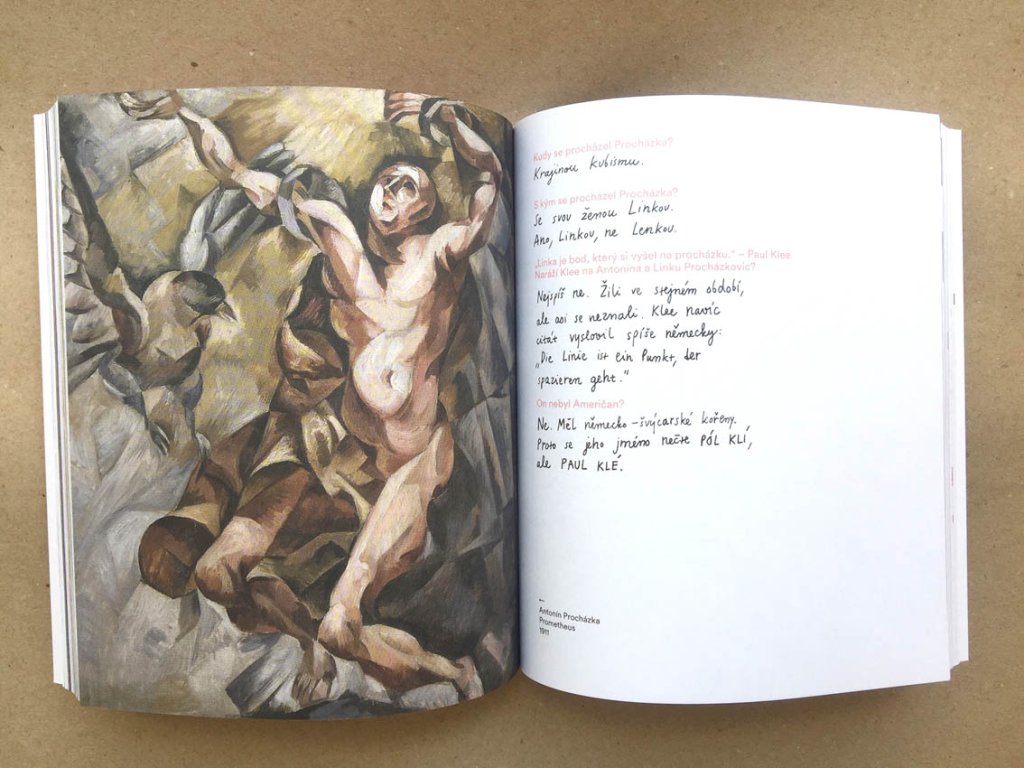 Kudy se procházel Procházka?
Krajinou kubismu.
S kým se procházel Procházka?
Se svou ženou Linkou.
Ano, Linkou, ne Lenkou.
„Linka je bod, který si vyšel na procházku.“ – Paul Klee
Naráží Klee na Antonína a Linku Procházkovic?
Nejspíš ne. Žili ve stejném období,
ale asi se neznali. Klee navíc
citát vyslovil spíše německy:
„Die Linie ist ein Punkt, der
spazieren geht.“
On nebyl Američan?
Ne. Měl německo-švýcarské kořeny.
Proto se jeho jméno nečte PÓL KLÍ,
ale PAUL KLÉ.
←
Antonín Procházka
Prometheus
1911